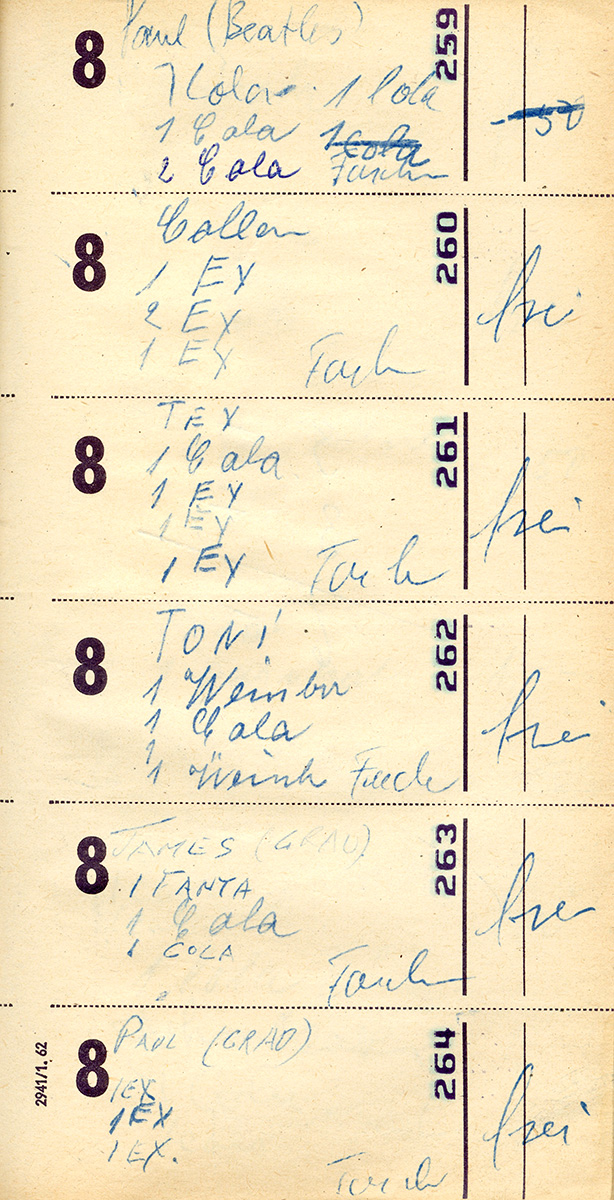 8 Paul (Beatles) 259
1 Cola 1 Cola
1 Cola 1 Cola 50
2 Cola
8 260
1 EX
2 EX frei
1 EX
8 TEX 261
1 Cola
1 EX frei
1 EX
1 EX
8 TONI 262
1
1 Cola frei
1
1
8 JAMES (GRAD) 263
1 FANTA
1 Cola frei
1 COLA
2941/1. 62
8 PAUL (GRAD) 264
1 EX
1 EX frei
1 EX.